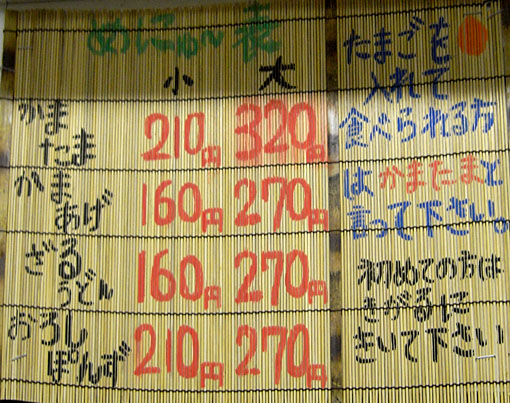 めにゅい表
小 大
かま
たま 210円 320円
かま
あげ 160円 270円
ざる
うどん 160円 270円
おろし
ぽんず 210円 270円
たまごを
入れて
食べられる方
はかまたまと
言って下さい。
初めての方は
きがるに
きいて下さい